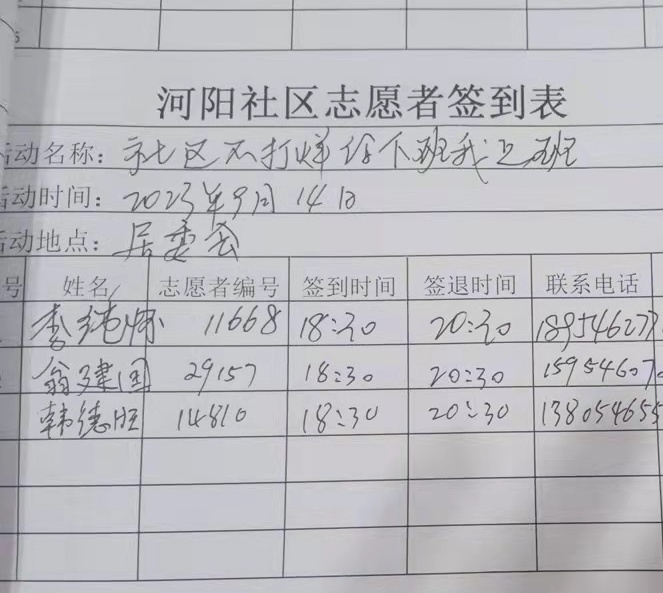 5
河阳社区志愿者签到表
活动名称：社区不打烊你下班我上班
活动时间：2023年9月14日
活动地点：居委会
号 姓名 志愿者编号 签到时间 签退时间 联系电话
李纯 11668 18:30 20:30 189546277
翁建国 29157 18:30 20:30 15954607
韩德旺 14810 18:30 20:30 138054655